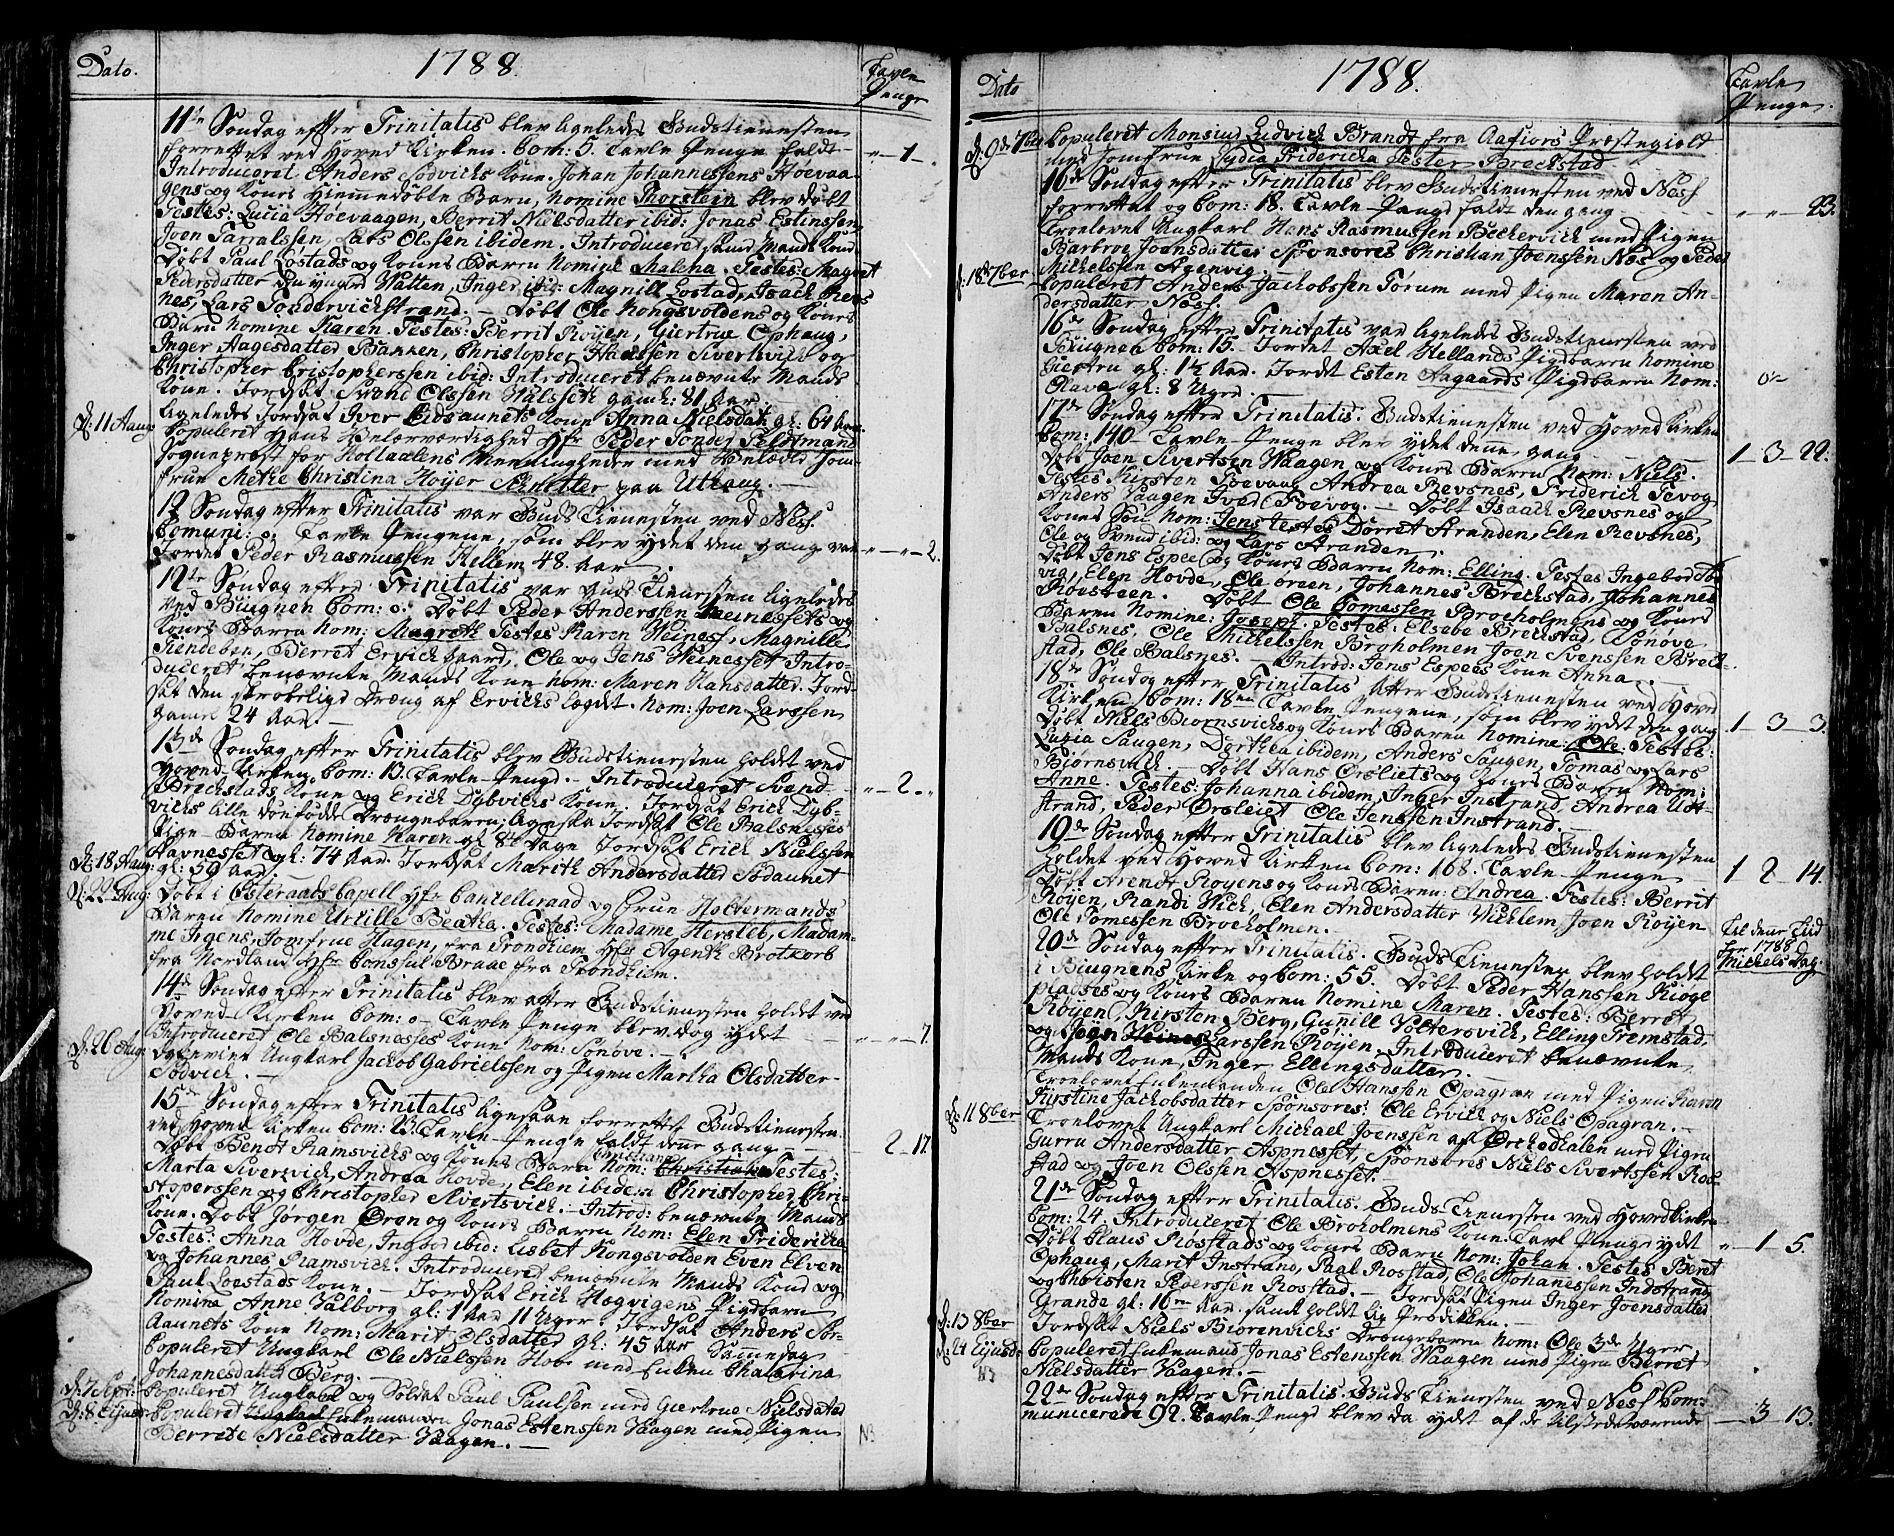 Dato. 1788. Tavle
Penge
11te Søndag effter Trinitatis blev ligeledes Gudstienesten
forrettet ved Hoved Kirken. Com: 5. Tavle Penge faldt
"-1-.
Introduceret Anders Sodvichs Kone. Johan Johannessens Hoevaa-
gens og Kones Hiemmedøbte Barn, Nomine Thorstein blev døbt
Testes: Lucia Hoevaagen, Berrit Nielsdatter ibid: Jonas Estinssen,
Joen Tarralssen, Lars Olssen ibidem. Introduceret samme Mands Kone
Døbt Paul Lostads og Kones Barn Nomine Malena. Testes: Magret
Pedersdatter den yngre Watten, Inger ibid: Magnill Lostad, Isach Revs
nes, Lars Sondervichstrand. - Døbt Ole Kongsvoldens og Kones
Barn Nomine Karen. Testes: Berrit Røyen, Giertrue Ophaug,
Inger Aagesdatter Bakken, Christopher Hanssen Sivertvich og
Christopher Cristopherssen ibid: Introduceret benævnte Mands
Kone. Jordsat Svend Olssen Halsseth gaml: 81 Aar.
ligeledes Jordsat Iver Eidsaunets Kone Anna Nielsdatt: gl: 64 Aar.
D: 11 Aaug: Copuleret Hans Velærværdighed Hr Peder Sonder Feldtmand
Sognepræst for Holtaalens Menninghede med Velædle Jom-
frue Methe Christina Høyer Schnitter paa Uthaug. -
12 Søndag effter Trinitatis var Guds Tienesten ved Ness.
Comuni: o. Tavle Pengene, som blev ydet den gang var
"-"-2.
Jordet Peder Rasmussen Hellem 48. Aar.
12te Søndag efter Trinitatis var Guds Tienesten ligeledes
ved Biugnen Com: o. Døbt Peder Anderssen Weinessets og
Kones Barn Nom: Magreth Testes Karen Weiness, Magnille
Rendeben, Berret Ervichgaard, Ole og Jens Weinesset Intro-
duceret benævnte Mands Kone nom: Maren Hansdatter. Jord-
sat den skrøbelige Dreng af Ervichs Lægdt. Nom: Joen Larssen
gaml 24 Aar. -
13de Søndag effter Trinitatis blev Gudstienesten holdet ved
Hoved Kirken. Com: 13. Tavle-Penge. - Introduceret Svend
"-2-"
Brechstads Kone og Erich Dybvichs Kone. Jordsat Erich Dyb-
vichs lille dødfødde Drengebarn, ligesaa Jordsat Ole Balsnesses
Pige-Barn Nomine Karen gl 8te Dage Jordsat Erich Nielssen
Havnesset gl: 74 Aar. Jordsat Marith Andersdatter Sødaunet
D: 18 Aaug: gl: 59 Aar. -
D: 22 Aug: Døbt i Østeraads Capell Hr Cancelleraad og Frue Holtermands
Barn Nomine Urcille Beatha. Testes: Madame Herstet, Madam-
me Irgens, Jomfrue Hagen, fra Trondhiem, Hr Agenth Brotkorb
fra Nordland Hr Consul Braae fra Trondhiem.
14de Søndag effter Trinitatis blev atter Gudstienesten holdet ved
Hoved-Kirken Com: o- Tavle Penge blev dog ydet
"-"-7.
Introduceret Ole Balsnesses Kone Nom: Sonove. -
D: 26 Aug: Ungkarl Jacob Gabrielssen og Pigen Martha Olsdatter-
Sodvich. -
15de Søndag effter Trinitatis ligesaa forrettet Gudstienesten
ved Hoved Kirken Com: 23. Tavle-Penge faldt denne gang -
2-17.
Døbt Bendt Ramsvichs og Kones Barn Nom: Christian Testes:
Marta Siversvich, Andrea Hovde, Elen ibidem Christopher Chri-
stoperssen og Christopher Sivertsvich. - Introd: benævnte Mands
Kone. Døbt Jørgen Øren og Kones Barn Nom: Elen Fridericha
Testes: Anna Hovde, Ingbor ibid: Lisbet Kongsvolden Even Elven
og Johannes Ramsvich. Introduceret benævnte Mands Kone og
Paul Loestads Kone. - Jordsat Erich Høgvigens Pigebarn
Nomine Anne Valborg gl: 1 Aar 11 Uger. Jordsat Anders Sør-
aunets Kone Nom: Marit Olsdatter gl: 45 Aar Samme dag
Copuleret Ungkarl Ole Nielssen Hob. med Enken Chatarina
Johannesdatter Berg. -
D: 7 Sept: Copuleret Ungkarl og Soldat Paul Paulsen med Giertrue Nielsdatter
D: 8 Ejusd: Copuleret Enkemanden Jonas Estenssen Vaagen med Pigen
Berrete Nielsdatter Vaagen. - NB
Dato 1788. Tavle
Penge.
D: 9de 7ber Copuleret Monsieur Ludvich Brandt fra Aafiors Præstegield
med Jomfrue Lydia Fridericka Tester Brechstad
16de Søndag efter Trinitatis blev Gudstienesten ved Ness
forrettet og Com: 18. Tavle-Penge faldt den gang
"-"-23.
Troelovet Ungkarl Hans Rasmussen Bechervich med Pigen
Barbroe Joensdatter Sponsores Christian Joenssen Næs og Peder
Mickelssen Agenvig. -
D: 18 7ber Copuleret Anders Jachobssen Forum med Pigen Maren An-
dersdatter Ness.
16de Søndag effter Trinitatis var ligeledes Gudstienesten ved
Biugnen Com: 15. Jordet Axel Hellands Pigebarn Nomine
Giertru gl: 1½ Aar. Jordt Esten Aagaards Pigebarn Nom:
Olava gl: 8 Uger. - o-
17de Søndag efter Trinitatis. Gudstienesten ved Hoved Kirken
Com: 140- Tavle-Penge blev ydet denne gang
1-3-22.
Døbt Joen Sivertsen Waagen og Kones Barn Nom: Niels.
Testes Kirsten Foevaag Andrea Revsnes, Friderich Fevog
Anders Vaagen Iver Foevog. - Døbt Isach Revsnes og
Kones Søn Nom: Jens Testes Dorret Stranden, Elen Revsnes,
Ole og Svend ibid: og Lars Stranden.
Døbt Jens Espee og Kones Barn Nom: Elling. Testes Ingebor
vig, Elen Hovde, Ole Øreen, Johannes Brechstad, Johannes
Roesteen. Døbt Ole Tomessen Broeholmens og Kones
Barn Nomine: Joseph. Testes. Elsebe Brechstad, Sønøve
Balsnes, Ole Michelssen Broholmen Joen Svenssen Brech-
stad, Ole Balsnes. - Introd: Jens Espees Kone Anna. -
18de Søndag effter Trinitatis. Atter Gudstienesten ved Hoved
Kirken Com: 18en Tavle Pengene, som blev ydet den gang
1-3-3.
Døbt Niels Biornsvichs og Kones Barn Nomine: Ole. Testes:
Lusia Saugen, Dorthea ibidem, Anders Saugen, Tomas og Lars
Biornsvich. - Døbt Hans Ørsliets og Kones Barn Nom:
Anne. Testes: Johanna ibidem, Inger Instrand Andrea Udt-
strand, Peder Ørsleiet Ole Jenssen Instrand. -
19de Søndag effter Trinitatis blev ligeledes Gudstienesten
holdet ved Hoved Kirken Com: 168. Tavle-Penge
1 2-14.
Døbt Arendt Røyens og Kones Barn: Andrea. Testes: Berrit
Røyen, Randi Wich, Elen Andersdatter Wichlem, Joen Røyen
Ole Tomessen Broeholmen.
Til denne Tiid
for 1788
Mickels Dag:
20de Søndag effter Trinitatis. Guds Tienesten blev holdt
i Biugnens Kirke og Com: 55. Døbt Peder Hanssen Kiøge
pladses og Kones Barn Nomine Maren. Testes: Berret
Røyen, Kirsten Berg, Gunill Voltersvich, Elling Fremstad,
og Joen Larssen Røyen. Introduceret benævnte
Mands Kone, Inger Ellingsdatter. -
Troelovet Enkemanden Ole Hanssen Opagran med Pigen Karen
D: 11 8ber Kirstine Jachobsdatter Sponsores: Ole Ervich og Niels Opagran. -
Troelovet Ungkarl Michael Joenssen af Ørchedhalen med Pigen
Gurru Andersdatter Aspnesset, Sponsores Niels Sivertssen Ros-
stad og Joen Olssen Aspnesset.
21de Søndag effter Trinitatis. Guds Tienesten ved Hovedkirken
Com: 24, Introduceret Ole Broholmens Kone. Tavl Penge ydet
" 1 5.
Døbt Claus Rosstads og Kones Barn Nom: Johan. Testes Beret
Ophaug, Marit Instrand, Paal Rosstad, Ole Johanessen Indstrand
og Christen Peerssen Rosstad. - Jordsat Pigen Inger Joensdatter
Grande gl: 16en Aar. samt holdt Lig Prædiken. -
D: 13 8ber Jordsat Niels Biorenvichs Drengebarn Nom: Ole 3de Uger
D: 24 Ejusd: Copuleret Enkemand Jonas Estenssen Waagen med Pigen Berret
NB Nielsdatter Vaagen. -
22de Søndag effter Trinitatis. Guds Tienesten ved Ness Com-
municerede 92. Tavle-Penge blev da ydet af de tilstædeværende
-3 13.